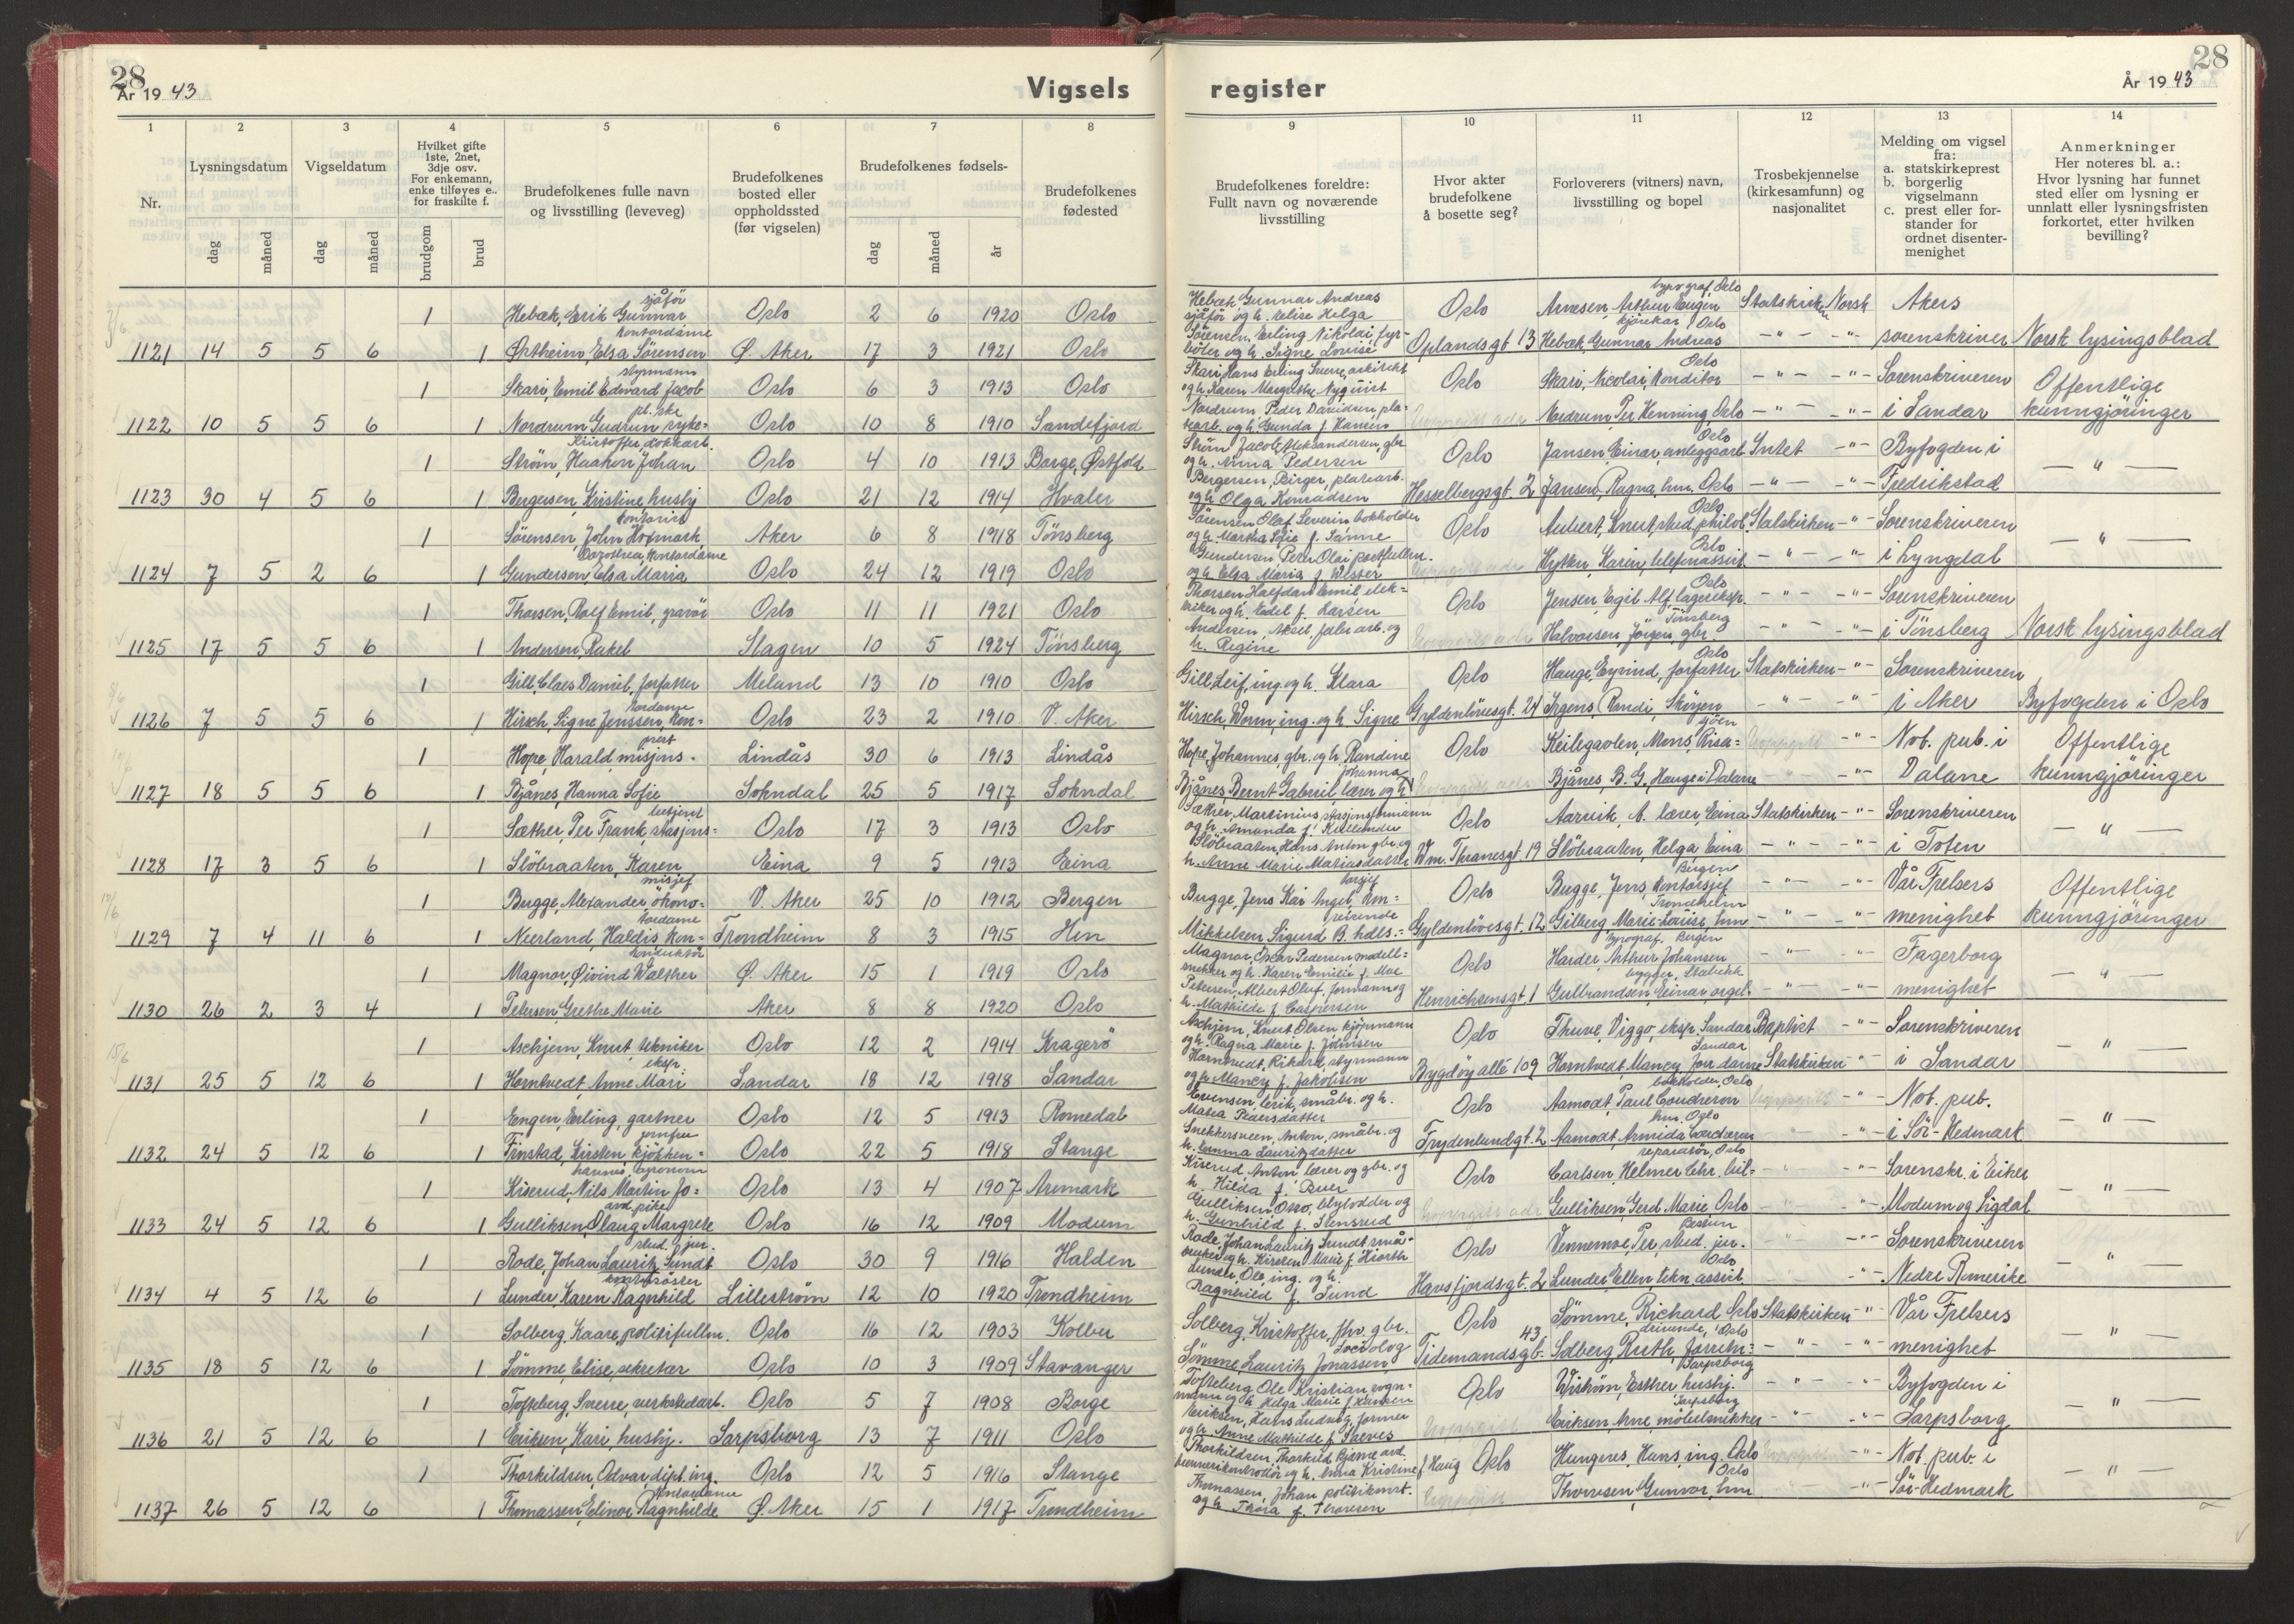 28
År 19 43
Vigsels
register
28
År 19 43
1 2 3 4 5 6 7 8 9 10 11 12 13 14
Nr.
Lysningsdatum
dag måned
Vigseldatum
dag måned
Hvilket gifte
1ste, 2net,
3dje osv.
For enkemann,
enke tilføyes e..
for fraskilte f.
brudgom brud
Brudefolkenes fulle navn
og livsstilling (leveveg)
Brudefolkenes
bosted eller
oppholdssted
(før vigselen)
Brudefolkenes fødsels-
dag måned år
Brudefolkenes
fødested
Brudefolkenes foreldre:
Fullt navn og nåværende
livsstilling
Hvor akter
brudefolkene
å bosette seg?
Forloverers (vitners) navn,
livsstilling og bopel
Trosbekjennelse
(kirkesamfunn) og
nasjonalitet
Melding om vigsel
fra:
a. statskirkeprest
b. borgerlig
vigselmann
c. prest eller for-
stander for
ordnet disenter-
menighet
Anmerkninger
Her noteres bl. a.:
Hvor lysning har funnet
sted eller om lysning er
unnlatt eller lysningsfristen
forkortet, etter hvilken
bevilling?
1 Hebæk, Erik Gunnar sjåför Oslo 2 6 1920 Oslo
1121 14 5 5 6 1 Østheim, Elsa Sörensen kontordame Ø. Aker 17 3 1921 Oslo
1 Skari, Emil Edward Jacob styrmann Oslo 6 3 1913 Oslo
1122 10 5 5 6 1 Nordrum Gudrun, syke- pl.ske Oslo 10 8 1910 Sandefjord
1 Ström, Haakon Johan Kristoffer, dokkarb. Oslo 4 10 1913 Borge, Østfold
1123 30 4 5 6 1 Bergersen, Kristine, hushj Oslo 21 12 1914 Hvaler
1 Sörensen, John Hofmark kontorist Aker 6 8 1918 Tönsberg
1124 7 5 2 6 1 Gundersen, Elsa Maria Dorothea, kontordame Oslo 24 12 1919 Oslo
1 Thorsen, Rolf Emil, gravör Oslo 11 11 1921 Oslo
1125 17 5 5 6 1 Andersen, Rakel Slagen 10 5 1924 Tönsberg
1 Gill, Claes Daniel, forfatter Meland 13 10 1910 Oslo
1126 7 5 5 6 1 Hirsch, Signe Jenssen, kon- tordame Oslo 23 2 1910 V. Aker
1 Hope, Harald, misjons- prest Lindås 30 6 1913 Lindås
1127 18 5 5 6 1 Bjånes, Hanna Sofie Sokndal 25 5 1917 Sokndal
1 Sæther, Per Frank, stasjons- betjent Oslo 17 3 1913 Oslo
1128 17 3 5 6 1 Slöbraaten, Karen Eina 9 5 1913 Eina
1 Bugge, Alexander, ökono- misjef V. Aker 25 10 1912 Bergen
1129 7 4 11 6 1 Neerland, Haldis, kon- tordame Trondheim 8 3 1915 Hen
1 Magnor, Øivind Walther konduktör Ø. Aker 15 1 1919 Oslo
1130 26 2 3 4 1 Petersen, Grethe Marie Aker 8 8 1920 Oslo
1 Aschjem, Knut, tekniker Oslo 12 2 1914 Kragerö
1131 25 5 12 6 1 Horntvedt, Anne Mari eksp. Sandar 18 12 1918 Sandar
1 Engen, Erling, gartner Oslo 12 5 1913 Romedal
1132 24 5 12 6 1 Finstad, Kirsten kjökken- jomfru Oslo 22 5 1918 Stange
1 Kiserud, Nils Martin Jo- hannes, agronom Oslo 13 4 1907 Aremark
1133 24 5 12 6 1 Gulliksen, Olaug Margrete arb.pike Oslo 16 12 1909 Modum
1 Rode, Johan Lauritz Sundt stud. jur. Oslo 30 9 1916 Halden
1134 4 5 12 6 1 Lunder, Karen Ragnhild Lilleström 12 10 1920 Trondheim
1 Solberg, Kaare, politifullm. Oslo 16 12 1903 Kolbu
1135 18 5 12 6 1 Sömme, Elise, sekretær Oslo 10 3 1909 Stavanger
1 Tofteberg, Sverre, verkstedarb. Oslo 5 7 1908 Borge
1136 21 5 12 6 1 Eriksen, Kari, hushj. Sarpsborg 13 7 1911 Oslo
1 Thorkildsen, Odvar, dipl. ing. Oslo 12 5 1916 Stange
1137 26 5 12 6 1 Thomassen, Elinor Ragnhilde kontordame Ø. Aker 15 1 1917 Trondheim
Hebæk, Gunnar Andreas
sjåför og h. Elise Helga Oslo Arnesen, Arthur Eugen typograf, Oslo Statskirken Norsk Akers
Sörensen, Erling Nikolai, fyr-
böter og h. Signe Lovise Oplandsgt 13 Hebæk, Gunnar Andreas kjörekar, Oslo -"- -"- sorenskriver Norsk lysingsblad
Skari, Hans Erling Sverre, arkitekt
og h. Karen Margrethe Nyquist Oslo Skari, Nicolai, konditor Oslo -"- -"- Sorenskriveren Offentlige
Nordrum, Peder Davidsen, pla-
tearb. og h. Gunda f. Hansen Uoppgitt adr Nordrum, Per Henning, Oslo -"- -"- i Sandar kunngjöringer
Ström, Jacob Aleksandersen, gbr
og h. Anna Pedersen Oslo Jansen, Einar, anleggsarb Oslo Intet -"- Byfogden i
Bergersen, Birger, platearb.
og h. Olga Konradsen Hesselbergsgt. 2 Jansen, Ragna, hm. Oslo -"- -"- Fredrikstad -"-
Sörensen Olaf Severin bokholder
og h. Martha Sofie f. Sanne Oslo Aubert, Knut, stud. philol. Oslo Statskirken -"- Sorenskriveren
Gundersen, Peter Olai postfullm.
og h. Elsa Maria f. Wister Uoppgitt adr Hytten, Karin, telefonassist Oslo -"- -"- i Lyngdal -"-
Thorsen Halfdan Emil elek-
triker og h. Edel f. Larsen Oslo Jensen, Egil Alf lagereksp. Oslo -"- -"- Sorenskriveren
Andersen, Aksel, fabr.arb. og
h. Regine Uoppgitt adr Halvorsen, Jörgen, gbr. Tönsberg -"- -"- i Tönsberg Norsk lysingsblad
Gill, Leif, ing. og h. Klara Oslo Hauge, Eyvind, forfatter Oslo Statskirken -"- Sorenskriveren
Hirsch, Worm, ing. og h. Signe Gyldenlövesgt. 24 Irgens, Randi, Sköyen -"- -"- i Aker Byfogden i Oslo
Hope, Johannes gbr. og h. Randine Oslo Keilegavlen, Mons, Risa- sjöen Uoppgitt -"- Not. pub. i Offentlige
Bjånes Bernt Gabriel, lærer og h. Johanna Uoppgitt adr Bjånes, B. G., Hauge i Dalane -"- Dalane kunngjöringer
Sæther, Martinius, stasjonsformann
og h. Amanda f. Kullander Oslo Aarvik, A. lærer, Eina Statskirken -"- Sorenskriveren
Slöbraaten, Hans Anton gbr. og
h. Anne Marie Matiasdatter Wm. Thranesgt. 19 Slöbraaten, Helga Eina -"- -"- i Toten -"-
Bugge, Jens Kai Ingel, kon- torsjef Oslo Bugge, Jens, kontorsjef Bergen -"- -"- Vår Frelsers Offentlige
Mikkelsen Sigurd B. hdls.- reisende Gyldenlövesgt. 12 Gilberg, Marie-Louise, hm Trondheim -"- -"- menighet kunngjöringer
Magnor, Oscar Pedersen modell-
snekker og h. Karen Emilie f. Moe Oslo Harder, Arthur Johansen typograf, Bergen -"- -"- Fagerborg
Petersen, Albert Oluf, formann og
h. Mathilde f. Caspersen Henrichsensgt. 1 Gulbrandsen, Einar orgel- bygger, Stabekk -"- -"- menighet -"-
Aschjem, Knut Olsen kjöpmann
og h. Ragna Marie f. Johnsen Oslo Thuve, Viggo, eksp. Sandar Baptist -"- Sorenskriveren
Horntvedt, Rikard, styrmann
og h. Nancy f. Jakobsen Bygdöy allé 109 Horntvedt, Nancy, forr.dame Sandar Statskirken -"- i Sandar -"-
Evensen, Erik, småbr. og h.
Matea Pedersdatter Oslo Aamodt, Paul Coudieron bokholder, Oslo Uoppgitt -"- Not. pub.
Snekkersveen, Anton, småbr. og
h. Emma Lauritzdatter Frydenlundgt. 2 Aamodt, Armida hm. Oslo -"- i Sör-Hedmark -"-
Kiserud, Anton, lærer og gbr. og
h. Hilda f. Buer Oslo Carlsen, Helmer Chr. bil- reparatör, Oslo -"- Sorenskr. i Eiker
Gulliksen, Otto, blylodder og
h. Gunhild f. Stensrud Uoppgitt adr Gulliksen, Gerd Marie, Oslo -"- Modum og Sigdal -"-
Rode, Johan Lauritz Sundt små-
bruker og h. Kirsten Marie f. Hiorth Oslo Vennemoe, Per, stud. jur. Bestum -"- Sorenskriveren
Lunder, Ole, ing. og h.
Ragnhild f. Sund Havsfjordsgt. 2 Lunder, Ellen tekn. assist. Oslo -"- Nedre Romerike -"-
Solberg, Kristoffer, fhv. gbr. Oslo Sömme, Richard Oslo Statskirken -"- Vår Frelsers
Sömme, Lauritz Jonassen, Tidemandsgt. 43 Solberg, Ruth, forretn.- drivende, Oslo -"- -"- menighet -"-
Tofteberg, Ole Kristian, vogn-
mann og h. Helga Marie f. Hansen Oslo Wiström, Esther, hushj. Sarpsborg -"- -"- Byfogden i
Eriksen, Hans Ludvig, former
og h. Anne Mathilde f. Sæves Uoppgitt Eriksen, Arne, möbelsnikker Sarpsborg -"- -"- Sarpsborg -"-
Thorkildsen, Thorkild Bjarne avd.
og h. Anna Kristine f Haug Oslo Hungnes, Hans, ing. Oslo Uoppgitt -"- Not. pub. i
Thomassen, Johan politikonst.
og h. Thora f. Thoresen Uoppgitt Thoresen, Gunvor, hm Oslo -"- Sör-Hedmark -"-